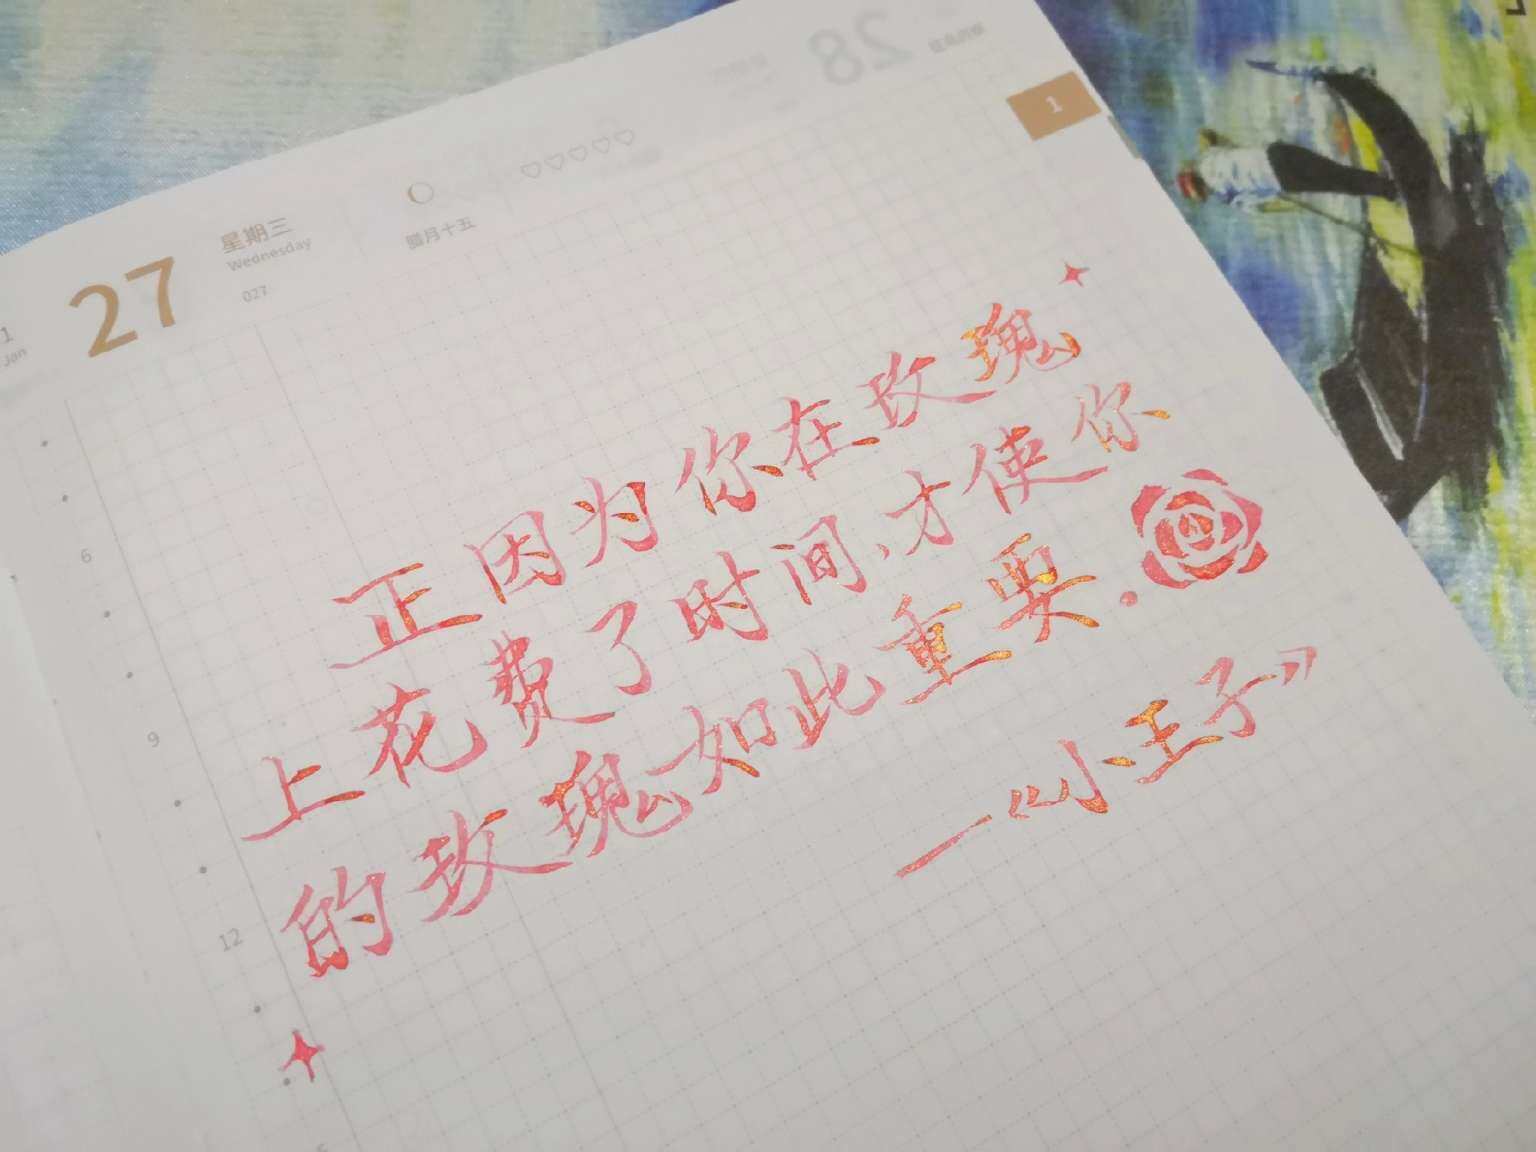 28
1
27
星期三
Wednesday
027
腊月十五
1
Jan
6
9
12
正因为你在玫瑰
上花费了时间,才使你
的玫瑰如此重要.
—《小王子》